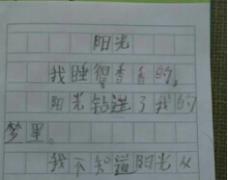 阳光
我睡得香香的，
阳光钻进了我的
梦里。
我不知道阳光从